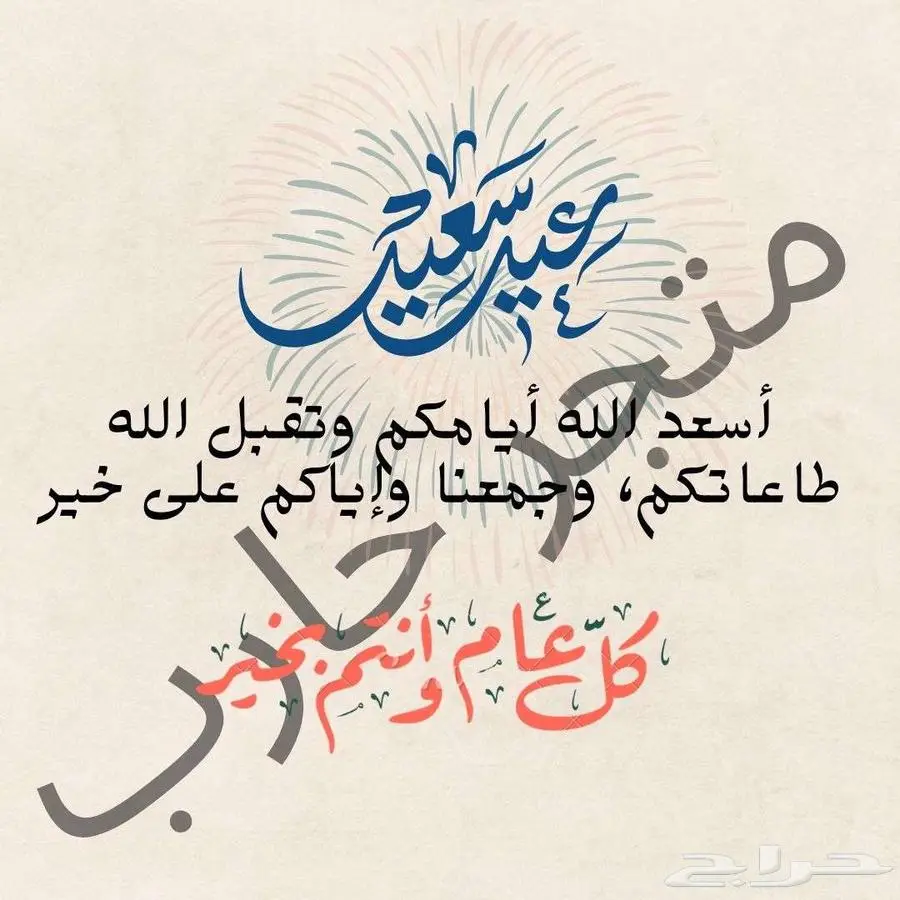 عيد سعيد
أسعد الله أيامكم وتقبل الله
طاعاتكم، وجمعنا وإياكم على خير
كلّ عام وأنتم بخير
متجر حارب
حراج